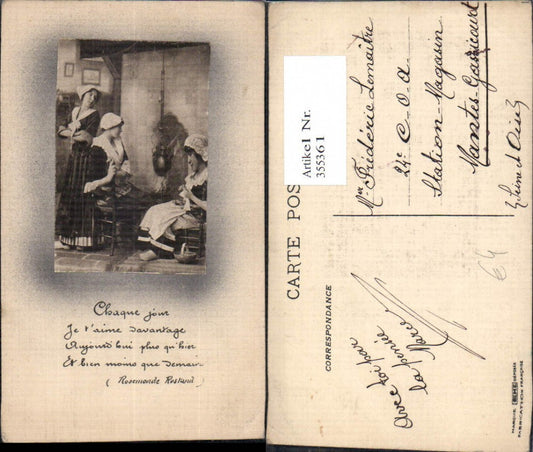 Chaque jour
Je t'aime davantage
Aujourd'hui plus qu'hier
Et bien moins que demain
(Rosemonde Rostand)
Artikel Nr.
355361
CARTE POS
CORRESPONDANCE
Mr Frédéric Lemaître
24e C.O.A
Station-Magasin
Mantes-Gassicourt
Seine et Oise
avec
toi par
la pensée
Marcel
64
MARQUE REX DÉPOSÉE
FABRICATION FRANÇAISE